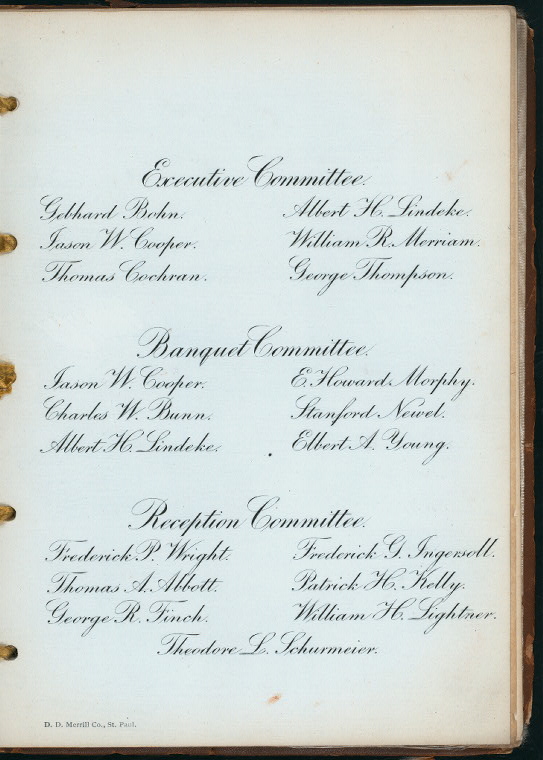 Executive Committee.
Gebhard Bohn. Albert H. Lindeke.
Jason W. Cooper. William R. Merriam.
Thomas Cochran. George Thompson.
Banquet Committee.
Jason W. Cooper. E. Howard Morphy.
Charles W. Bunn. Stanford Newel.
Albert H. Lindeke. Elbert A. Young.
Reception Committee.
Frederick P. Wright. Frederick G. Ingersoll.
Thomas A. Abbott. Patrick H. Kelly.
George R. Finch. William H. Lightner.
Theodore L. Schurmeier.
D. D. Merrill Co., St. Paul.